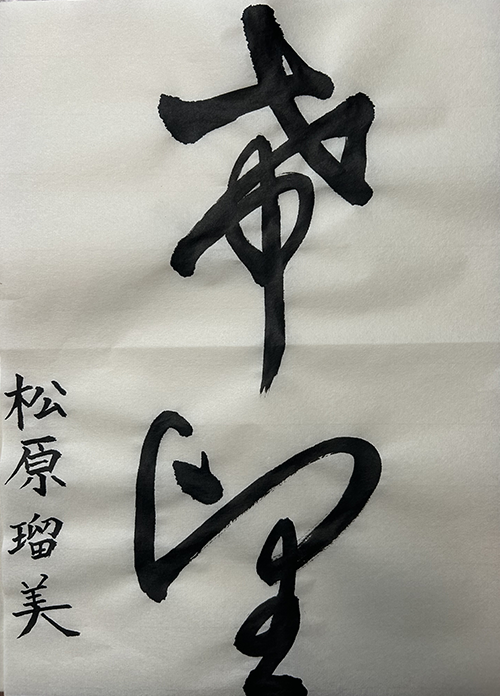 希望
松原瑠美